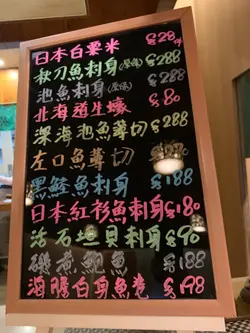 日本白粟米 $28/
秋刀魚刺身(原條) $288
池魚刺身(原條) $288
北海道生蠔 $80
深海池魚薄切 $288
左口魚薄切
黑鱈魚刺身 $188
日本紅衫魚刺身 $180
活石垣貝刺身 $90
磯煮鮑魚 $188
海膽白身魚卷 $198